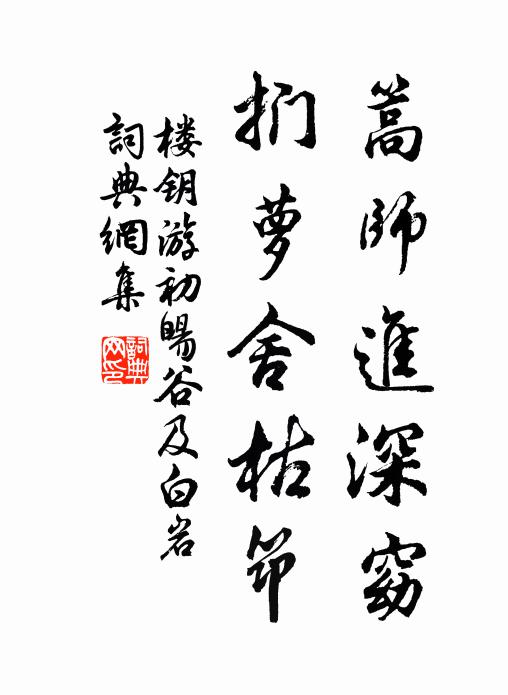 篙師進深窈
扪萝舍枯筇
楼钥游初暘谷及白岩
詞典網集
詞典网印